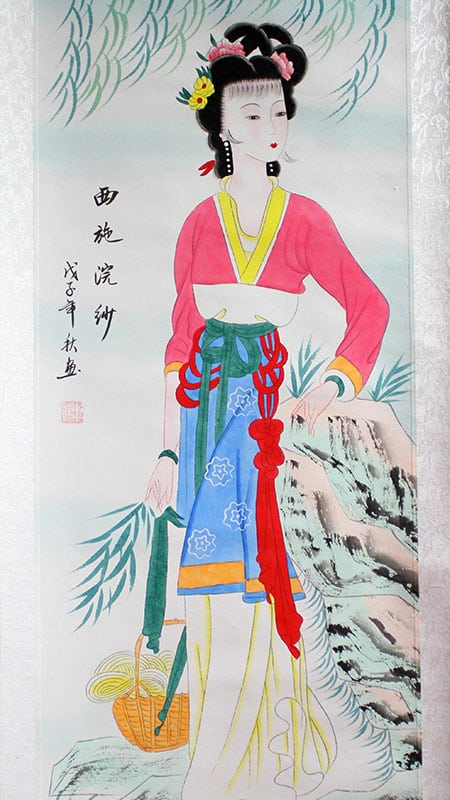 西施浣纱
戊子年秋画